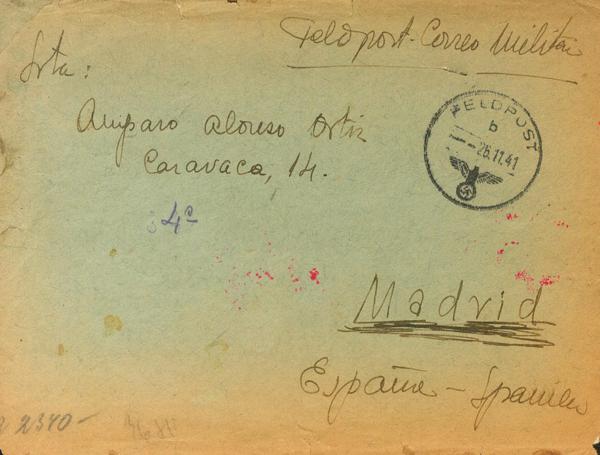 Feldpost - Correo Militar
Srta:
Amparo Alonso Ortiz
Caravaca, 14.
4º
FELDPOST
b
26.11.41
Madrid
España - Spanien
2340-